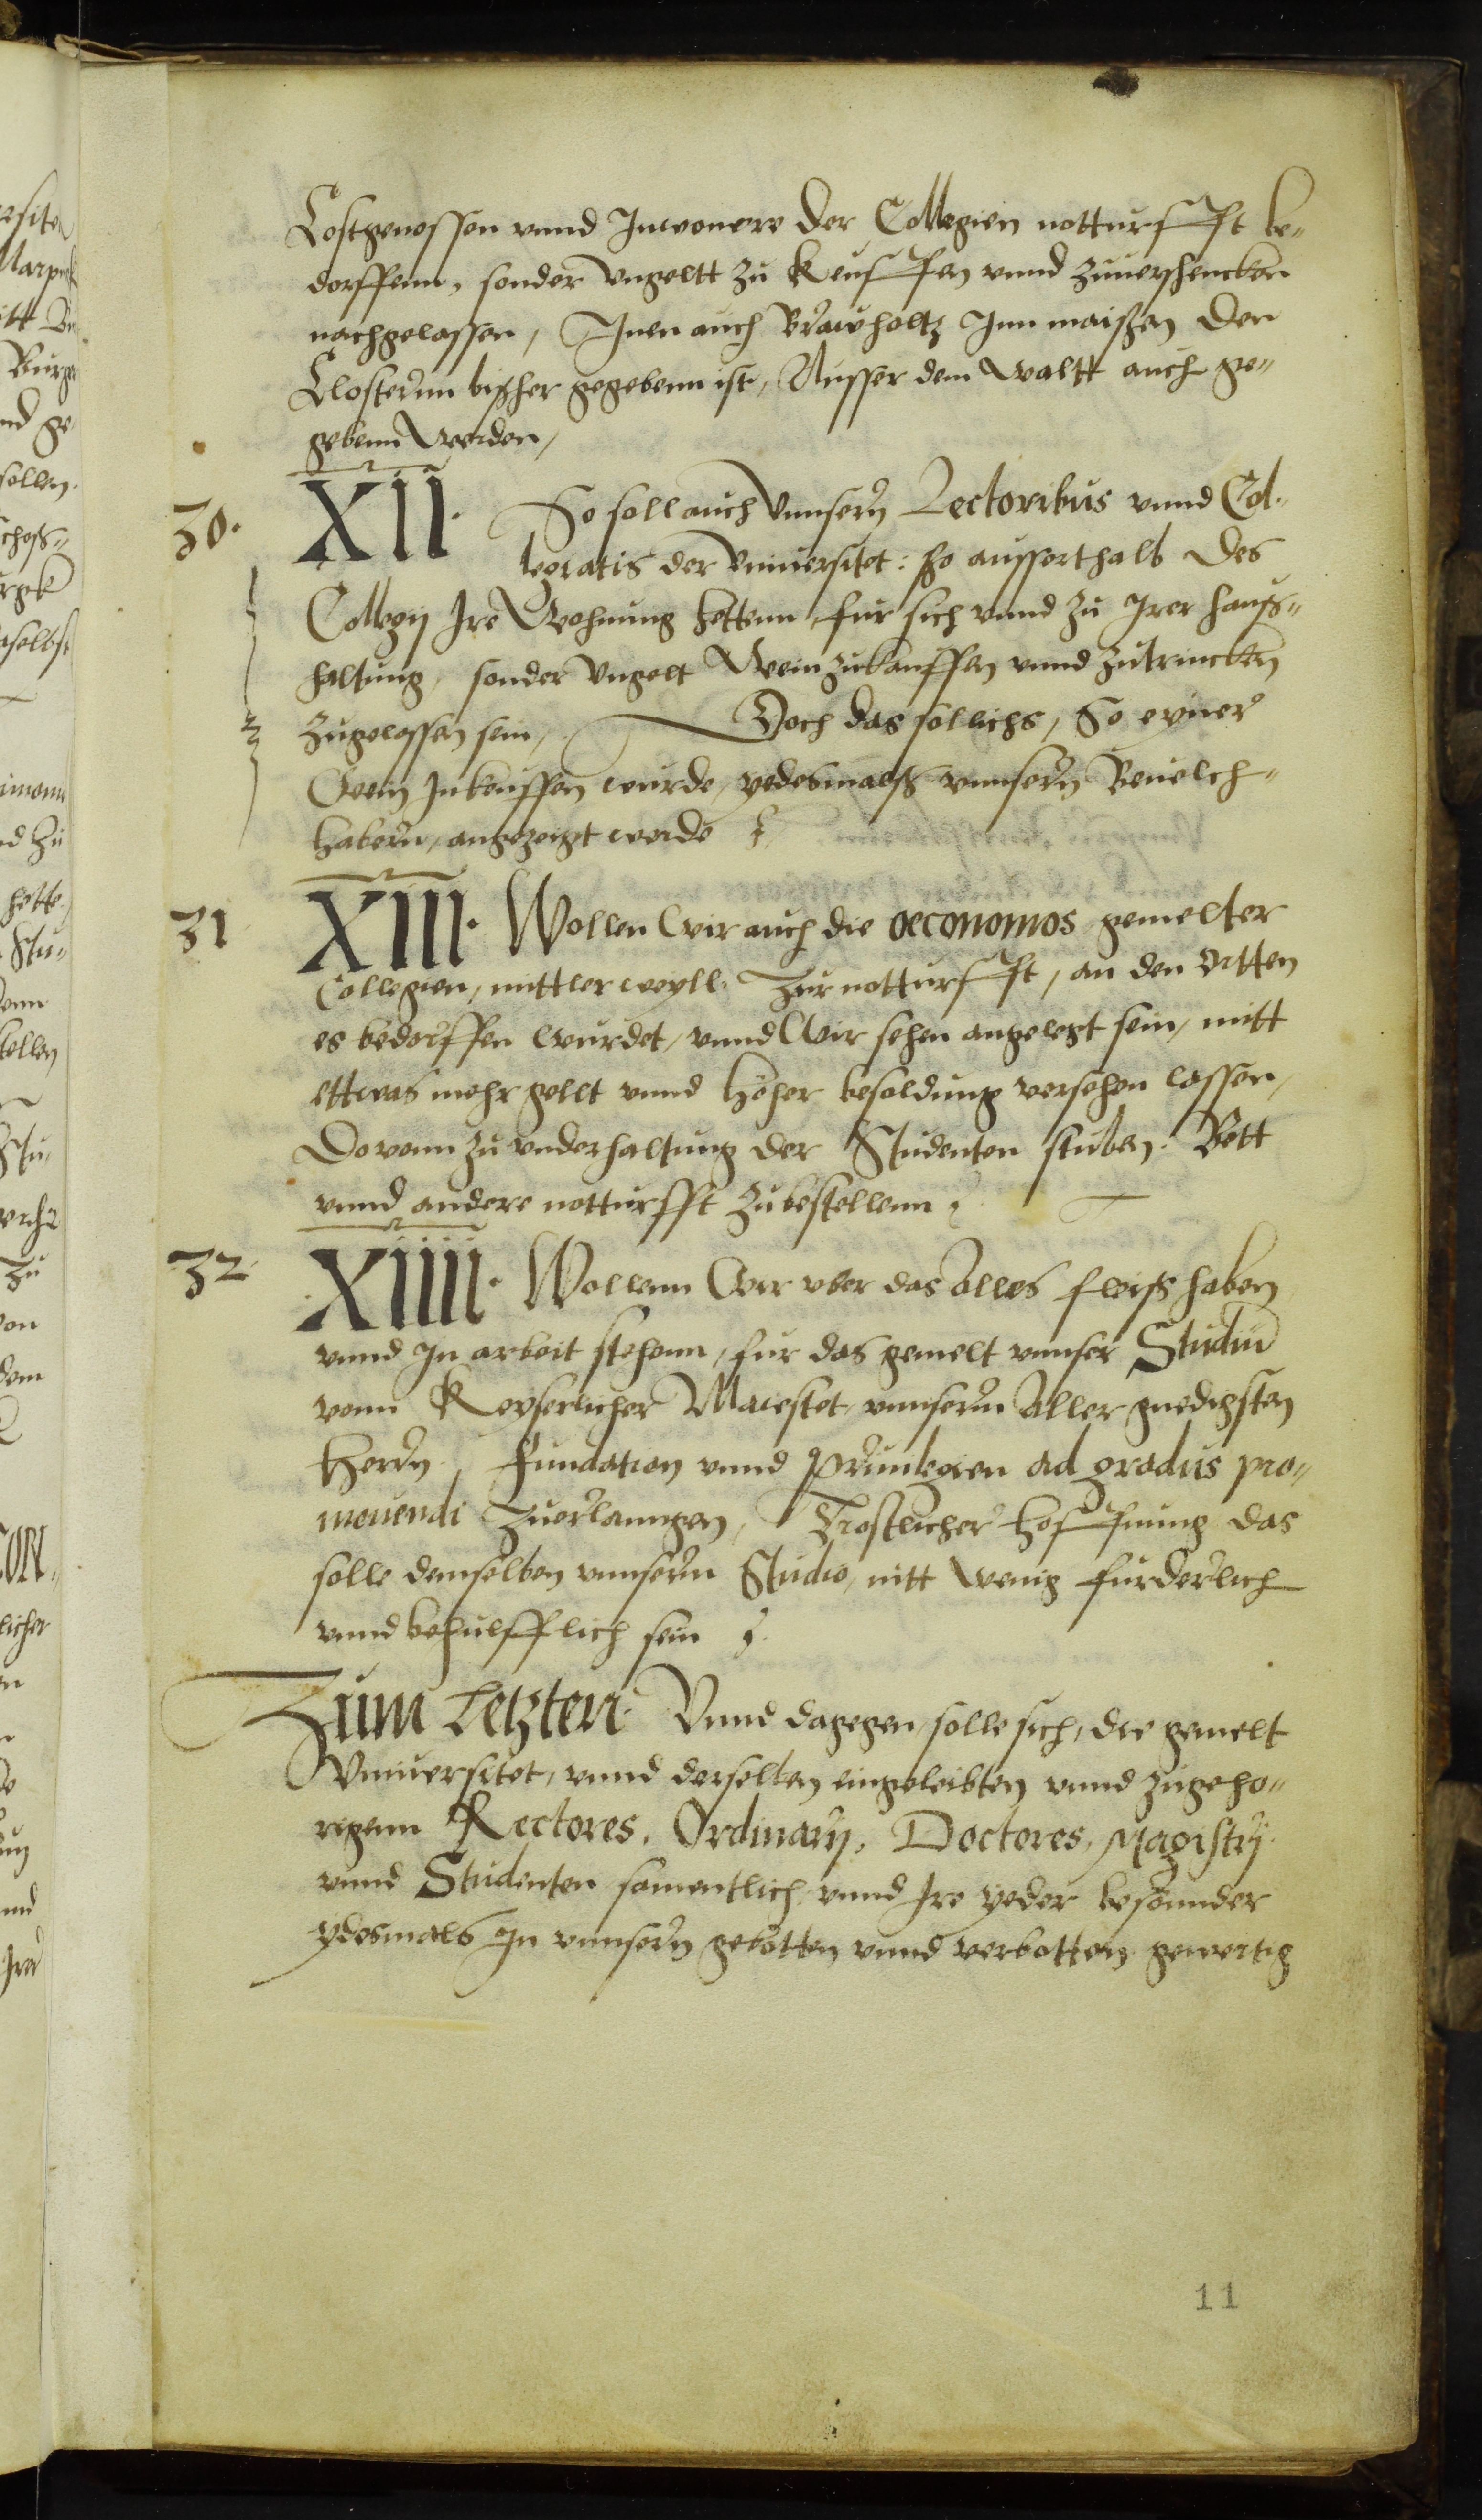 Costgenossen vnnd Inwonere der Collegien notturfft be-
dorffenn, sonder vngeltt zu keuffen vnnd zuuerschencken
nachgelassen, Inen auch Brawholtz Inn maißen den
Closternn bißher gegebenn ist, Ausser dem Waltt auch ge-
gebenn werden,
30. XII. So soll auch vnnsern Lectoribus vnnd Col-
legiatis der Vniuersitet: so ausserthalb des
Collegij Ire Wohnung hettenn, fur sich vnnd zu Irer hauß-
haltung, sonder vngelt Wein zukauffen vnnd zutrincken
zugelassen sein, Doch das sollichs, So eyner
Wein Inkeuffen wurde, yedesmalß vnnsern Beuelch-
habern, angezeigt werde
31 XIII. Wollen Wir auch die oeconomos gemelter
Collegien, mittler weyll. Zur notturfft, an den Ortten
es bedorffen wurdet, vnnd Wir sehen angelegt sein, mitt
ettwas mehr gellt vnnd höher besoldung versehen lassen,
Dovonn zu vnderhaltung der Studenten stuben. Bett
vnnd andere notturfft zubestellenn
32 XIIII. Wollenn Wir vber das alles fleiß haben
vnnd In arbeit stehenn, fur das gemelt vnnser Studiū
vonn Keyserlicher Maiestet, vnnserm Aller gnedigsten
Herrn, Fundation vnnd Priuilegien ad gradus pro-
mouendi zuerlanngen, Trostlicher hoffnung das
solle demselben vnnserm Studio, nitt wenig furderlich
vnnd behulfflich sein
Zum Letzten. Vnnd dagegen, solle sich, die gemelt
Vniuersitet, vnnd derselben eingeleibten vnnd zugeho-
rigenn Rectores. Ordinarij. Doctores, Magistrij
vnnd Studenten samentlich vnnd Ire yeder besonnder
ydesmals In vnnsern gebotten vnnd verbotten gewertig
11